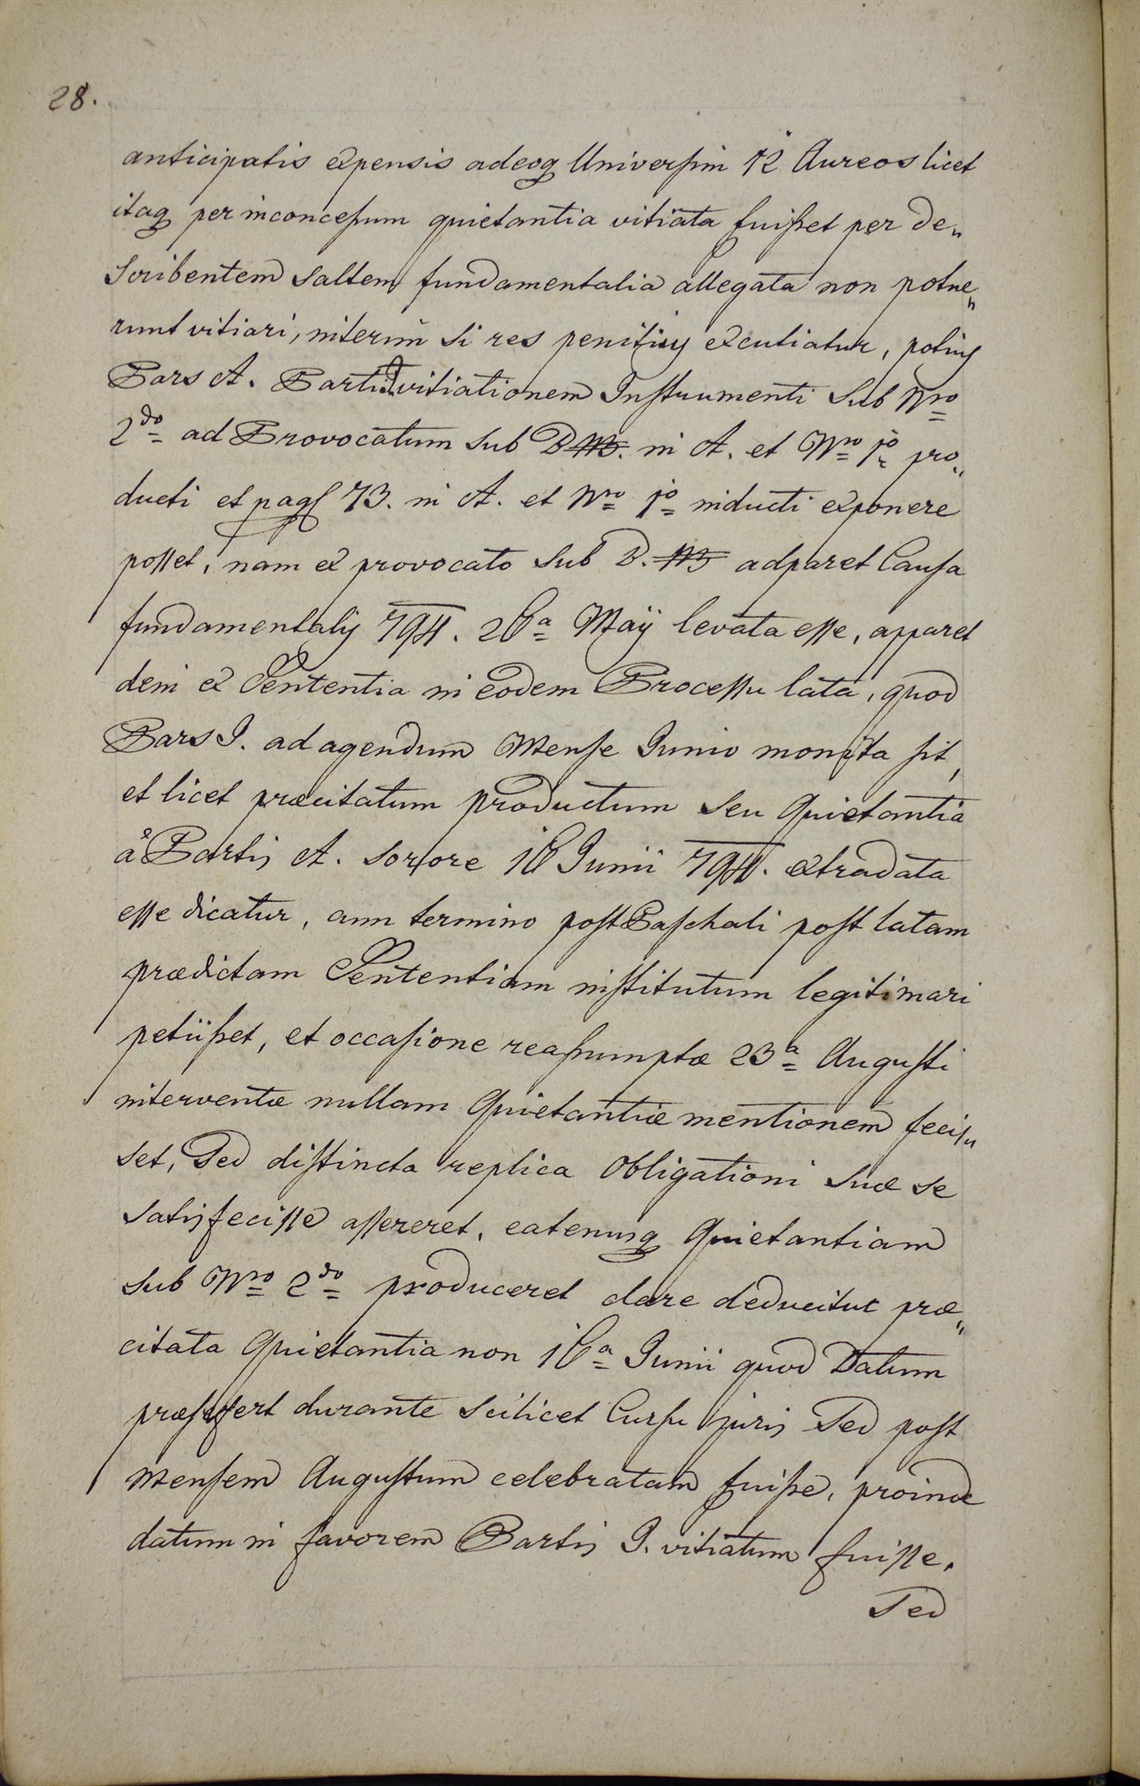 28.
anticipatis expensis adeoq Universim 12 Aureos licet
itaq per inconcessum quietantia vitiata fuisset per de„
scribentem saltem fundamentalia allegata non potue„
runt vitiari, interim si res penitius excutiatur, potius
Pars A. Partis I. vitiationem Instrumenti sub Nro
2do ad Provocatum sub D. in A. et Nro 1o pro„
ducti et pag 73. in A. et Nro 1o inducti exponere
posset, nam ex provocato sub D. adparet Causa
fundamentalis 794. 26a Maÿ levata esse, apparet
dein ex Sententia in eodem Processu lata, quod
Pars I. ad agendum Mense Junio monita sit,
et licet præcitatum productum seu Quietantia
å Partis A. sorore 16 Junii 794. extradata
esse dicatur, cum termino post Paschali post latam
prædictam Sententiam institutum legitimari
petiisset, et occasione reassumptæ 23a Augusti
interventæ nullam Quietantiæ mentionem fecis„
set, Sed distincta replica Obligationi suæ se
satisfecisse assereret, eatenusq Quietantiam
sub Nro 2do produceret clare deducitur præ„
citata Quietantia non 16a Junii quod Datum
præsefert durante scilicet Cursu juris Sed post
Mensem Augustum celebratam fuisse, proinde
datum in favorem Partis I. vitiatum fuisse.
Sed